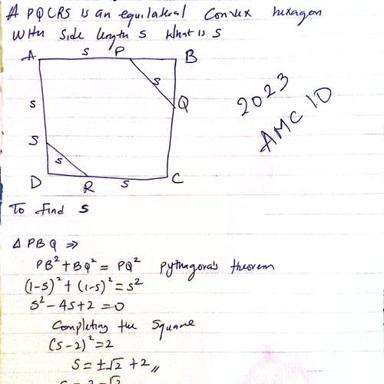 A PQCRS is an equilateral Convex hexagon
With side length s What is s
A s P B
s
s Q
2023
AMC 10
s
s
D R s C
To find s
△ PBQ ⇒
PB² + BQ² = PQ² pythagora's theorem
(1-s)² + (1-s)² = s²
s² - 4s + 2 = 0
Completing the square
(s-2)² = 2
s = ±√2 + 2,,